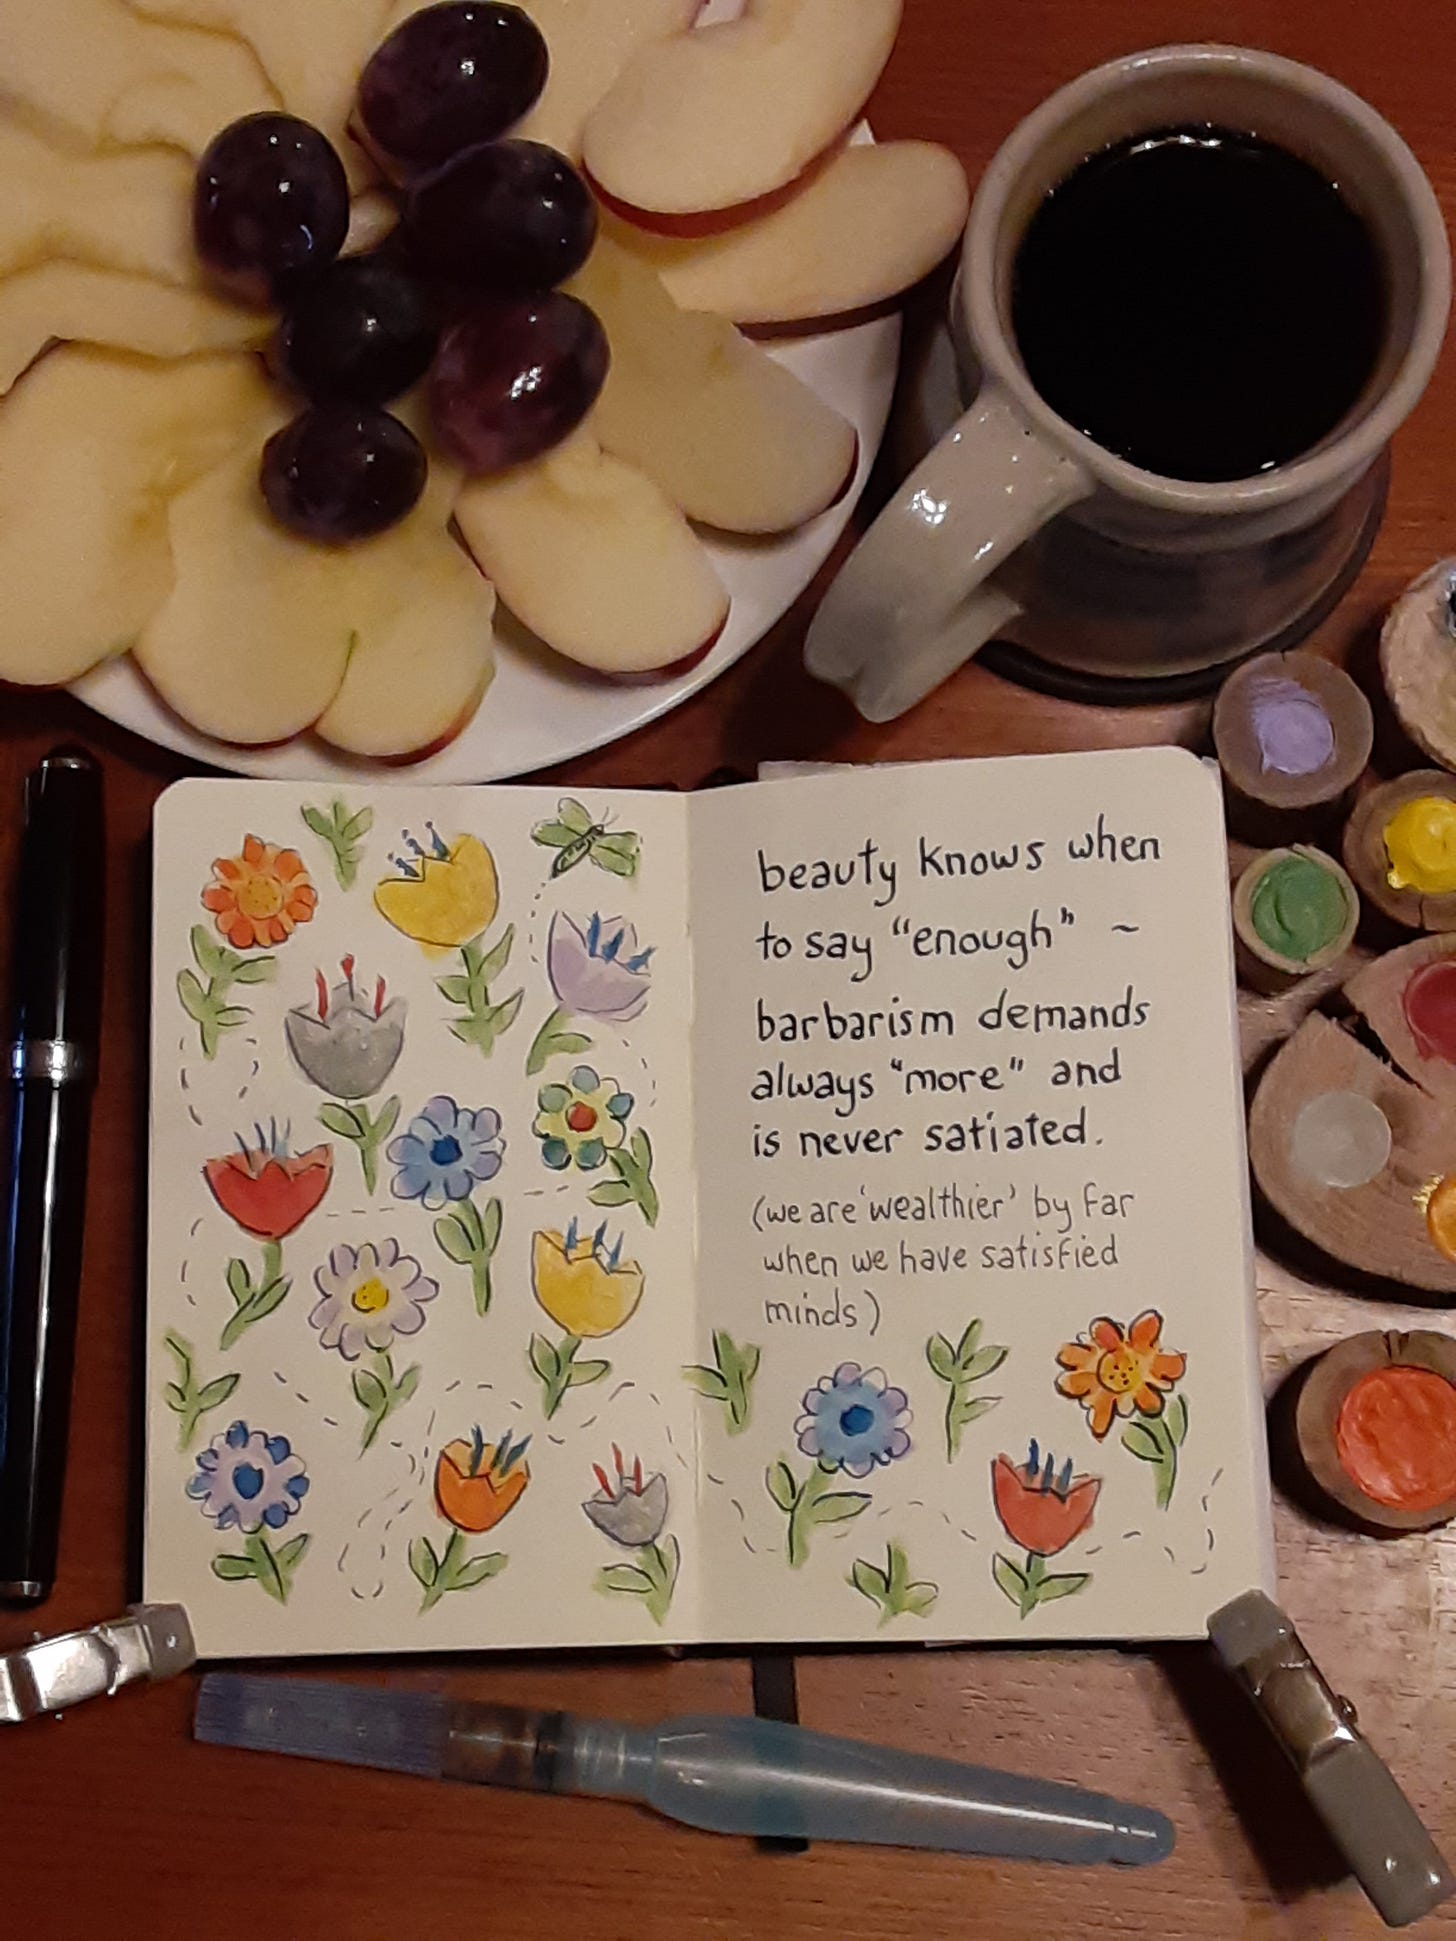 beauty knows when
to say "enough" ~
barbarism demands
always "more" and
is never satiated.
(we are 'wealthier' by far
when we have satisfied
minds)